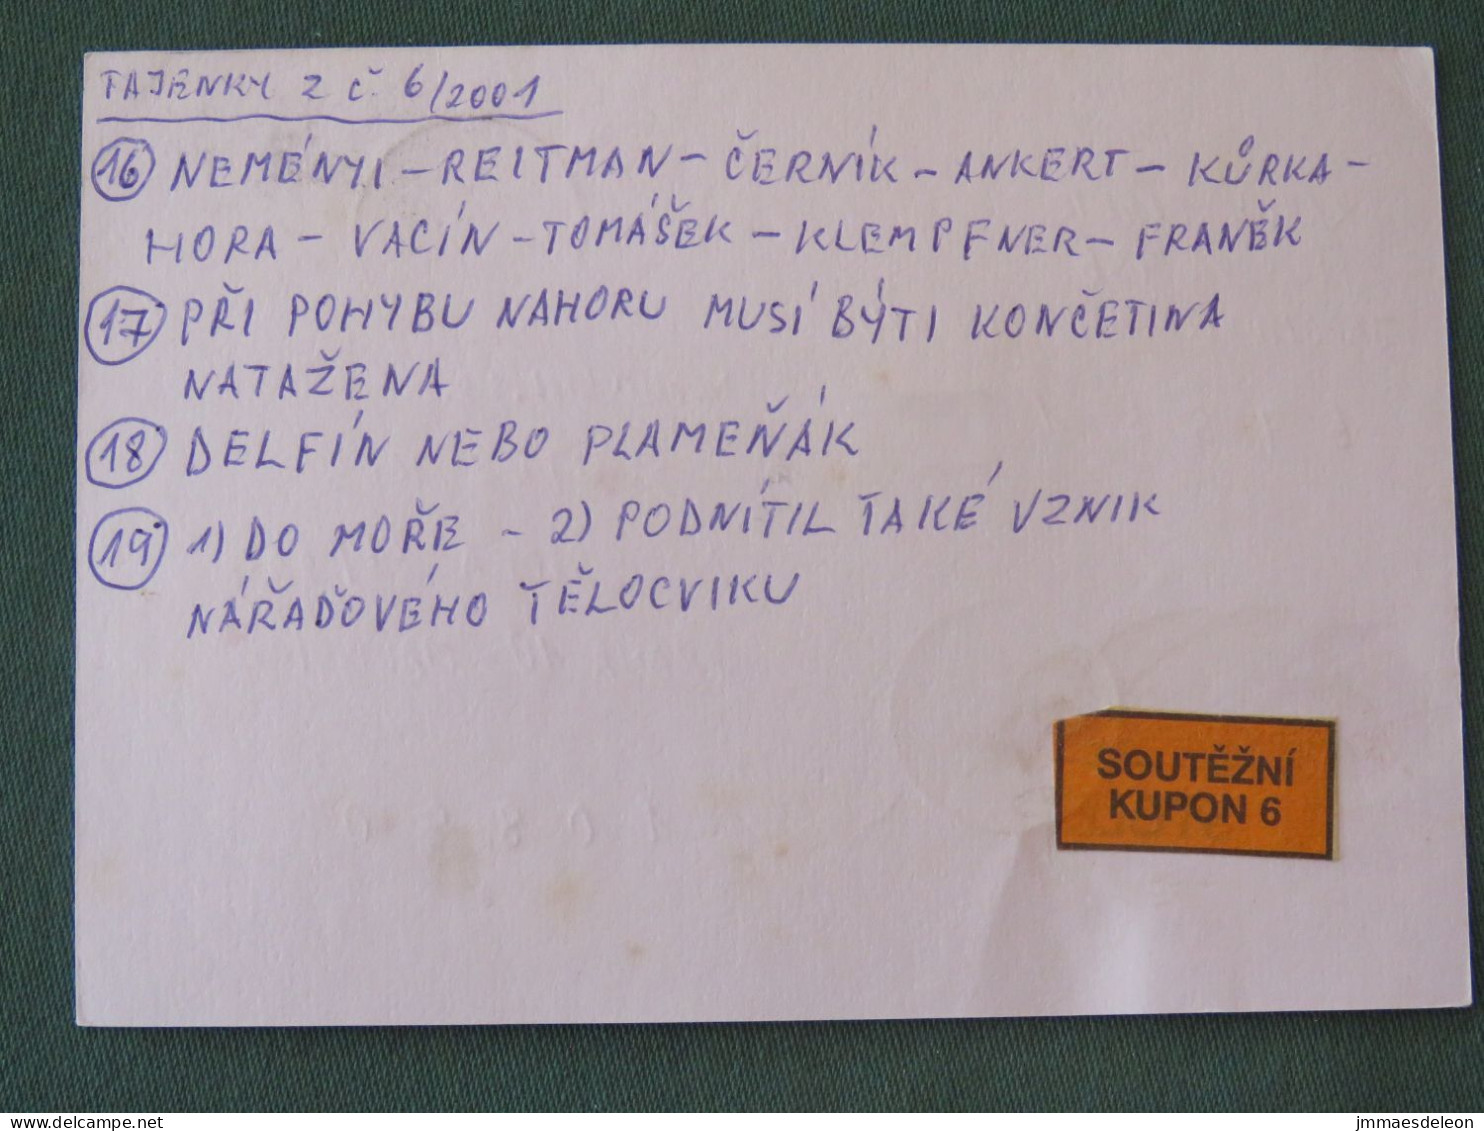 TAJENKY Z Č. 6/2001
16 NEMÉNYI – REITMAN – ČERNÍK – ANKERT – KŮRKA –
HORA – VACÍN – TOMÁŠEK – KLEMPFNER – FRANĚK
17 PŘI POHYBU NAHORU MUSÍ BÝTI KONČETINA
NATAŽENA
18 DELFÍN NEBO PLAMEŇÁK
19 1) DO MOŘE – 2) PODNÍTIL ŤAKÉ VZNIK
NÁŘAĎOVÉHO ŤĚLOCVIKU
SOUTĚŽNÍ
KUPON 6
www.delcampe.net
jmmaesdeleon